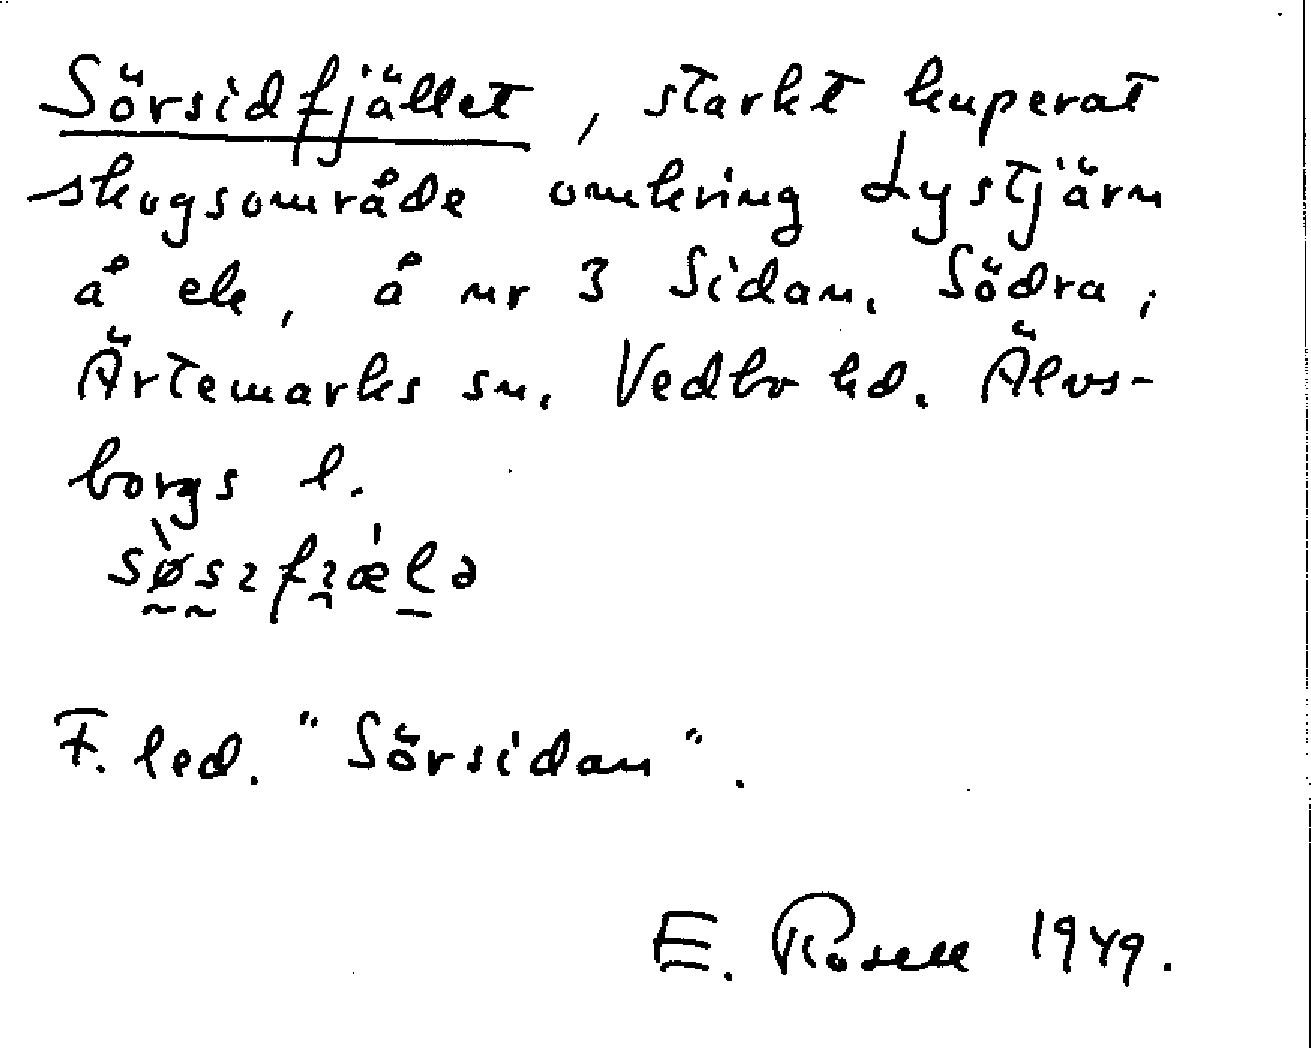 Sörsidfjället, starkt kuperat
skogsområde omkring Lystjärn
å ek, å nr 3 Sidan, Södra,
Ärtemarks sn, Vedbo hd. Älvs-
borgs l.
F. led. "Sörsidan".
E. Rosell 1949.